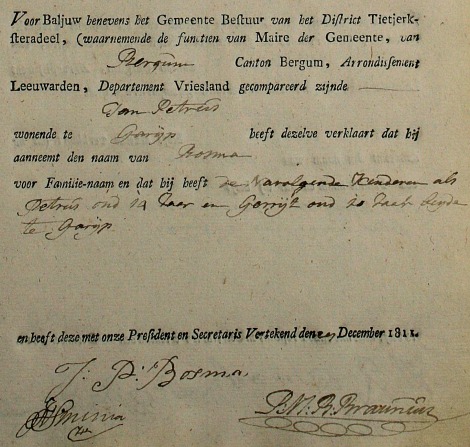 Voor Baljuw benevens het Gemeente Bestuur van het District Tietjerk-
steradeel, (waarnemende de functien van Maire der Gemeente, van
Bergum Canton Bergum, Arrondissement
Leeuwarden, Departement Vriesland gecompareerd zijnde
Jan Petrus
wonende te Garijp heeft dezelve verklaart dat hij
aanneemt den naam van Bosma
voor Familie-naam en dat hij heeft de Navolgende Kinderen als
Petrus oud 14 Jaar en Gerrijt oud 10 Jaar beyde
te Garijp
en heeft deze met onze President en Secretaris Vertekend den 29 December 1811.
J: P: Bosma